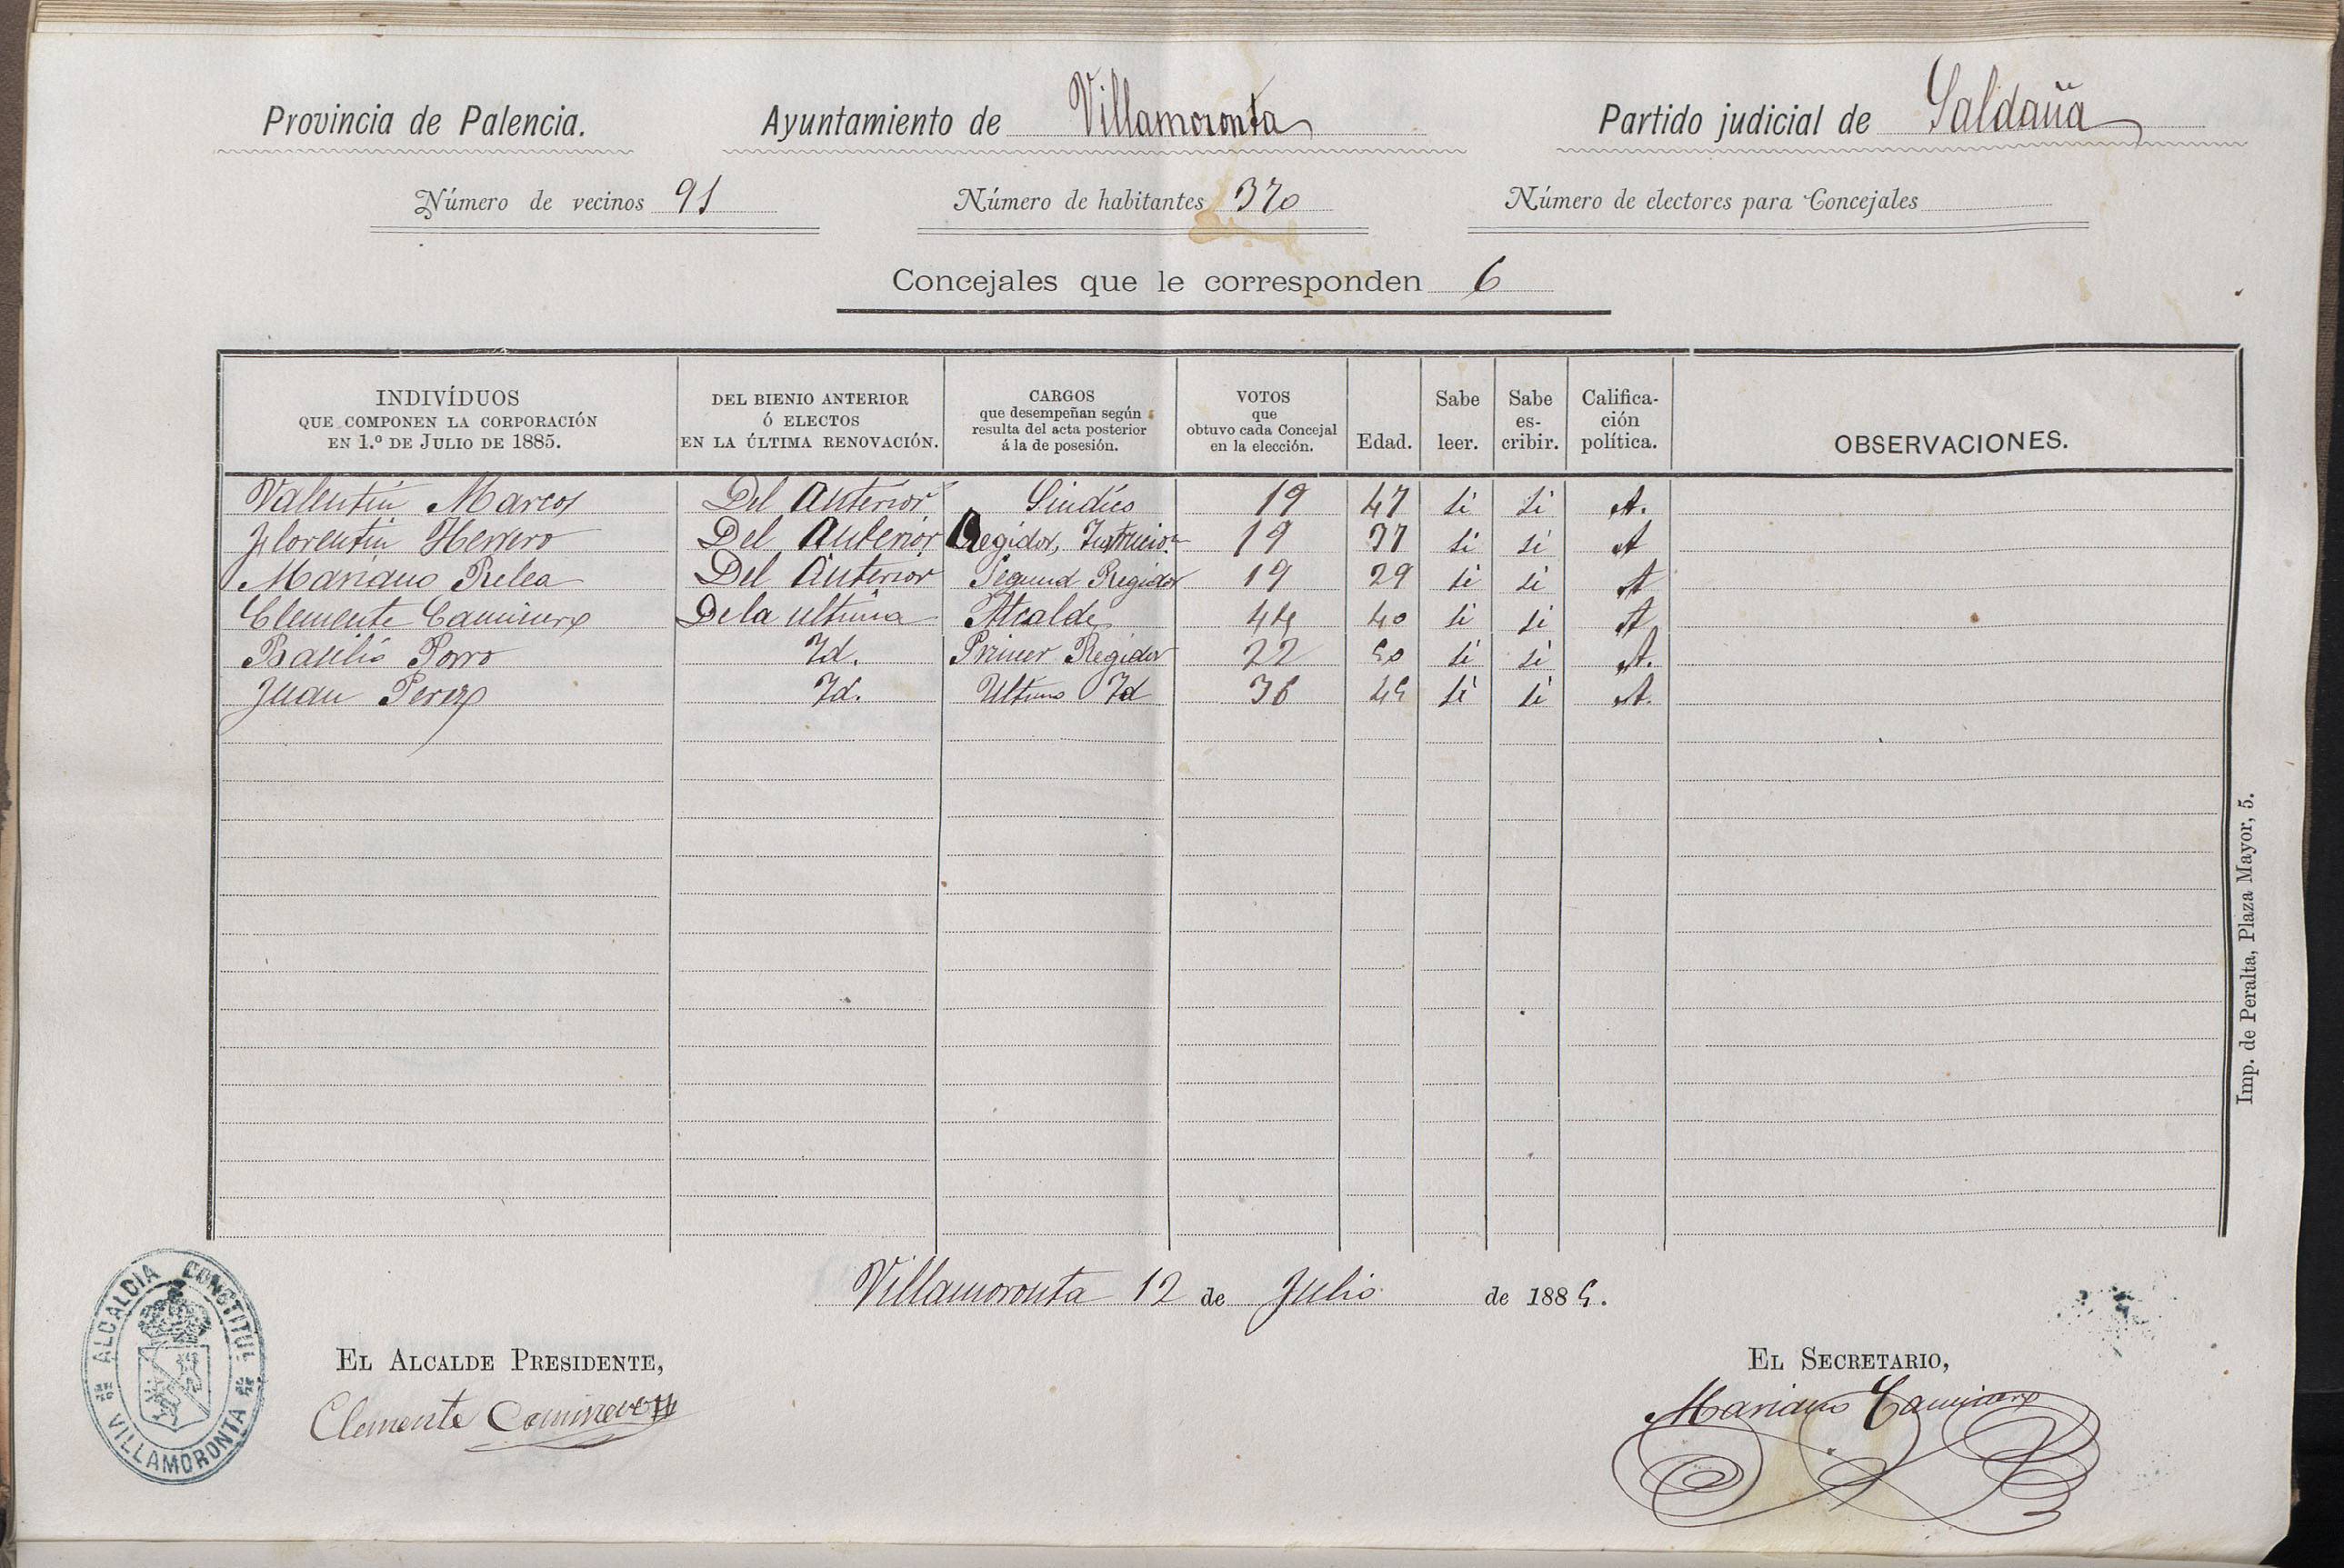 Provincia de Palencia. Ayuntamiento de Villamoronta Partido judicial de Saldaña
Número de vecinos 91 Número de habitantes 370 Número de electores para Concejales
Concejales que le corresponden 6
INDIVÍDUOS QUE COMPONEN LA CORPORACIÓN EN 1.º DE JULIO DE 1885. DEL BIENIO ANTERIOR Ó ELECTOS EN LA ÚLTIMA RENOVACIÓN. CARGOS que desempeñan según resulta del acta posterior á la de posesión. VOTOS que obtuvo cada Concejal en la elección. Edad. Sabe leer. Sabe es-cribir. Califica-ción política. OBSERVACIONES.
Valentin Marcos Del Anterior Sindico 19 47 si si A.
Florentin Herrero Del Anterior Regidor, 19 37 si si A
Mariano Relea Del Anterior Segund Regidor 19 29 si si A
Clemente Caminero De la ultima Alcalde 44 40 si si A
Basilio Porro Id. Primer Regidor 22 50 si si A.
Juan Perez Id. Ultimo Id 36 45 si si A.
Imp. de Peralta, Plaza Mayor, 5.
Villamoronta 12 de Julio de 1885.
ALCALDIA CONSTITUL VILLAMORONTA
EL ALCALDE PRESIDENTE, EL SECRETARIO,
Clemente Caminero Mariano Caminero